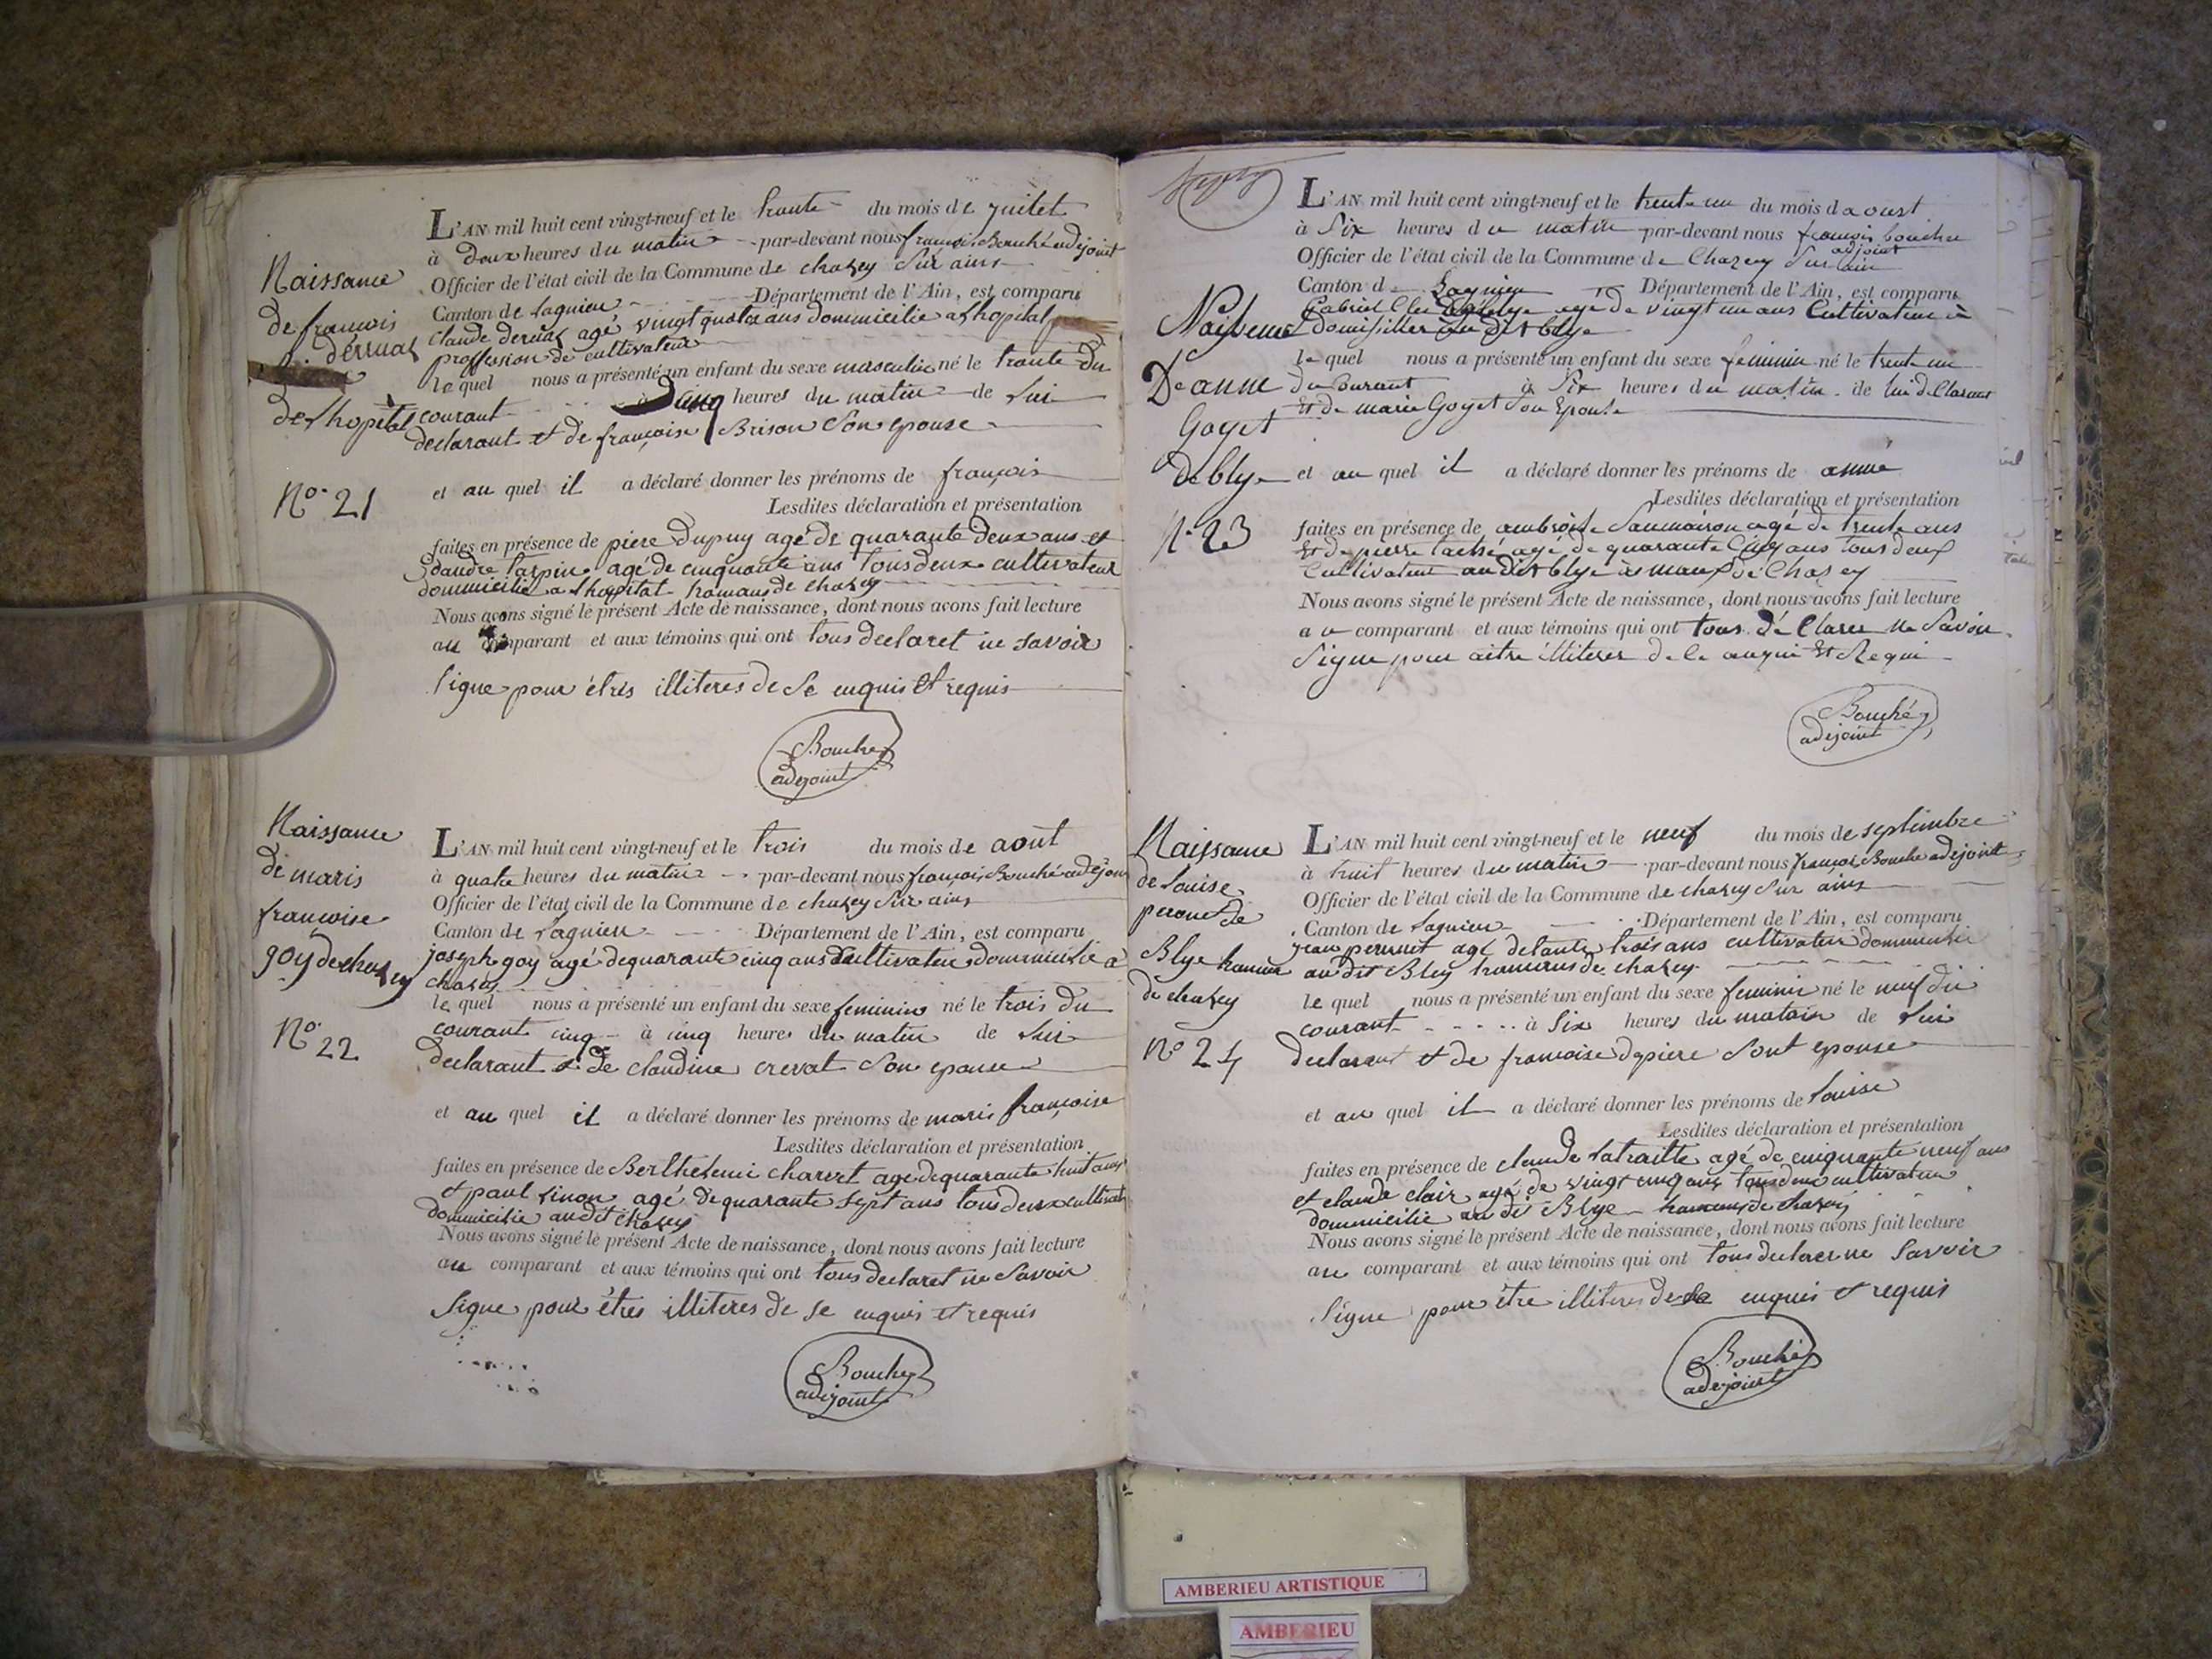 Naissance
de françois
derruaz
de Lhopital
N.o 21
L'AN mil huit cent vingt-neuf et le trante du mois de juilet
à deux heures du matin par-devant nous françois Bouché adejoint
Officier de l'état civil de la Commune de chazey sur ains
Canton de Lagnieu Département de l'Ain, est comparu
Claude deruaz agé vingt quatre ans dommicilie a Lhopital
proffession de cultivateur
le quel nous a présenté un enfant du sexe masculin né le trante du
courant à cinq heures du matin de lui
declarant et de françoise Brison son epouse
et au quel il a déclaré donner les prénoms de françois
Lesdites déclaration et présentation
faites en présence de piere Dupuy agé de quarante deux ans et
dandre tarpin agé de cinquante ans tous deux cultivateur
dommicilie a Lhopital hamaus de chazey
Nous avons signé le présent Acte de naissance, dont nous avons fait lecture
au comparant et aux témoins qui ont tous declaret ne savoir
signe pour étres illiteres de se enquis et requis
Bouché
adejoint
Naissance
de maris
françoise
goy de chazey
N.o 22
L'AN mil huit cent vingt-neuf et le trois du mois de août
à quatre heures du matin par-devant nous françois Bouché adejoin
Officier de l'état civil de la Commune de chazey sur ains
Canton de Lagnieu Département de l'Ain, est comparu
joseph goy agé de quarante cinq ans cultivateur dommicilie a
chazey
le quel nous a présenté un enfant du sexe feminins né le trois du
courant cinq à cinq heures du matin de lui
declarant et de claudine crevat son epouse
et au quel il a déclaré donner les prénoms de maris françoise
Lesdites déclaration et présentation
faites en présence de Berthelemi charvet age de quarante huit ans
et paul Sinon agé de quarante sept ans tous deux cultivat
dommicilie audit chazey
Nous avons signé le présent Acte de naissance, dont nous avons fait lecture
au comparant et aux témoins qui ont tous declaret ne savoir
signe pour étres illiteres de se enquis et requis
Bouché
adejoint
De anne
Goyet
de blye
N.o 23
L'AN mil huit cent vingt-neuf et le trent un du mois d aoust
à six heures du matin par-devant nous françois bouche
adjoint
Officier de l'état civil de la Commune de Chazey sur ain
Canton d Lagnieu Département de l'Ain, est comparu
Gabriel agé de vingt un ans Cultivateur
domisillier au dit blye
le quel nous a présenté un enfant du sexe feminin né le trent un
du Courant à six heures du matin de lui declarant
et de marie Goyet son Epouse
et au quel il a déclaré donner les prénoms de anne
Lesdites déclaration et présentation
faites en présence de ambroise agé de trente ans
Et de pierre agé de quarante Cinq ans tous deux
Cultivateur au dit blye de Chazey
Nous avons signé le présent Acte de naissance, dont nous avons fait lecture
au comparant et aux témoins qui ont tous de Clarer ne Savoir
Signe pour aitre illiterer de Ce anqui Et Requi
Bouché
adejoint
Naissance
de Louise
perount de
Blye hamau
de chazey
N.o 24
L'AN mil huit cent vingt-neuf et le neuf du mois de septimbre
à huit heures du matin par-devant nous françois Bouche adejoint
Officier de l'état civil de la Commune de chazey sur ains
Canton de Lagnieu Département de l'Ain, est comparu
jean perunet agé detante trois ans cultivateur dommicilie
au dit Bley hamaus de chazey
le quel nous a présenté un enfant du sexe feminin né le neuf du
courant à six heures du matain de lui
declarant et de francoise depiere sont epouse
et au quel il a déclaré donner les prénoms de Louise
Lesdites déclaration et présentation
faites en présence de claude Latraitte agé de cinquante neuf ans
et claude clair agé de vingt cinq ans tous deux cultivateur
dommicilie au dit Blye hamaus de chazey
Nous avons signé le présent Acte de naissance, dont nous avons fait lecture
au comparant et aux témoins qui ont tous declarer ne savoir
signe pour être illiteres de se enquis et requis
Bouché
adejoint
AMBERIEU ARTISTIQUE
AMBERIEU